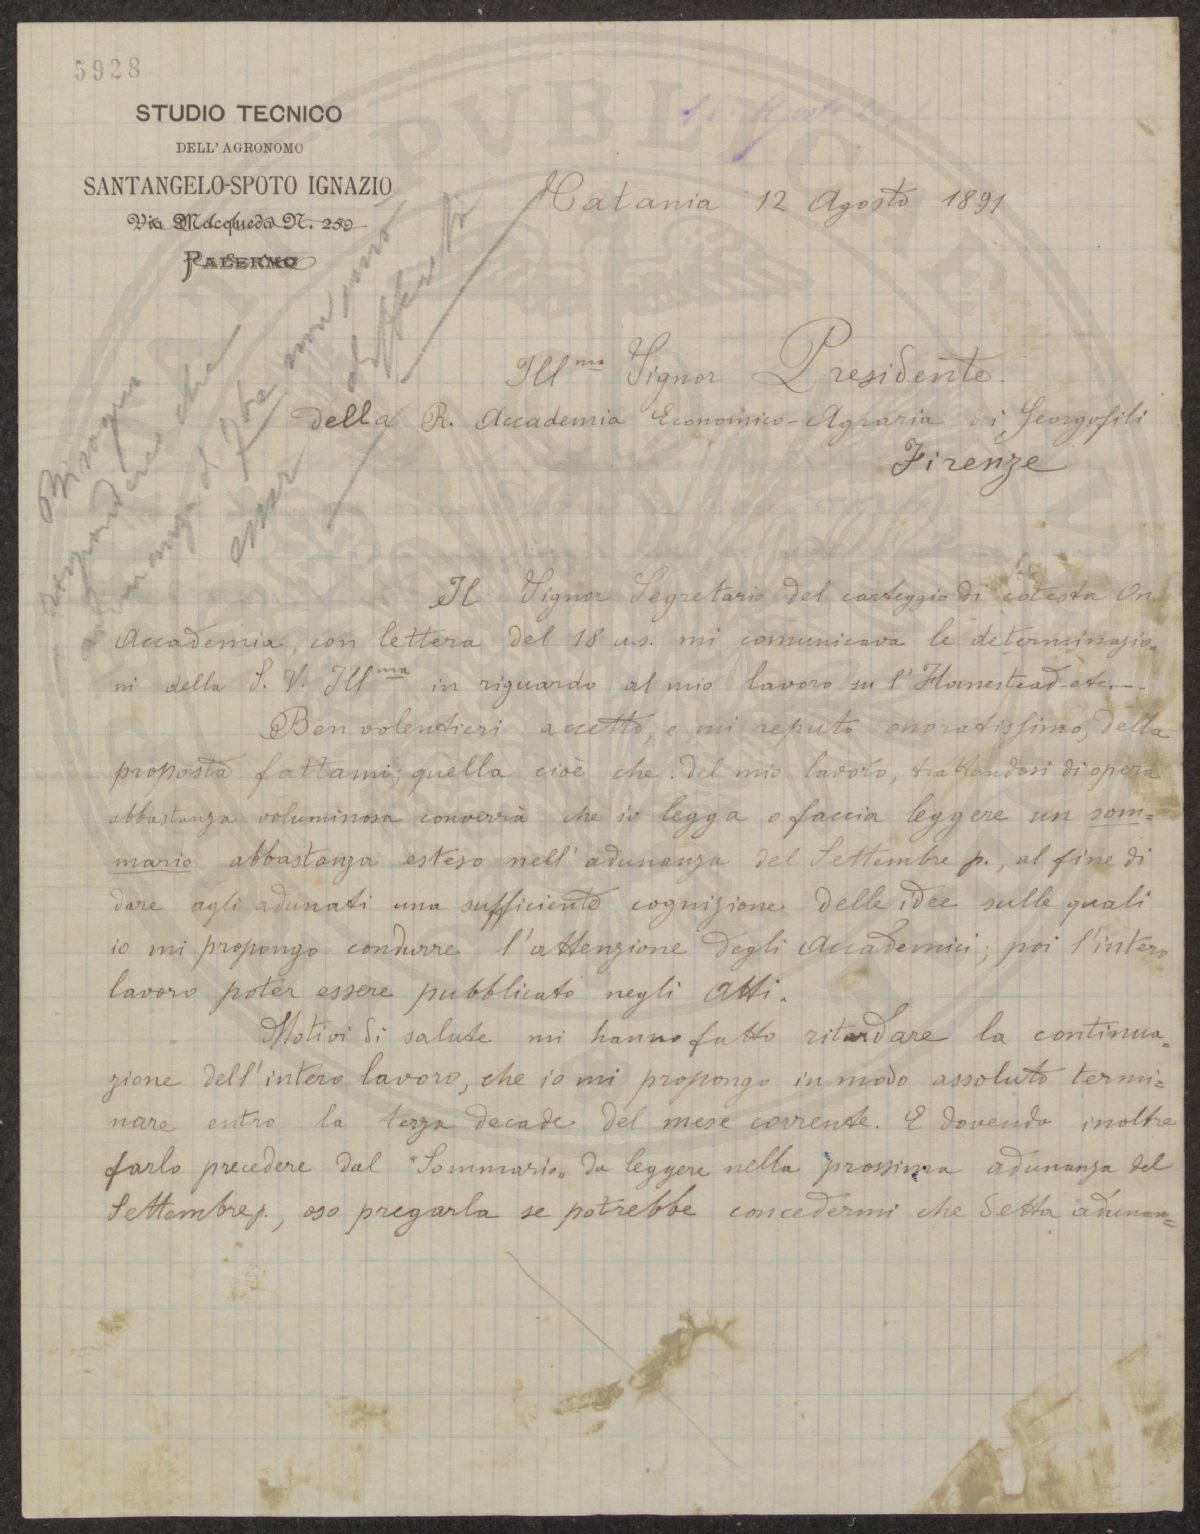 5928
STUDIO TECNICO
DELL'AGRONOMO
SANTANGELO-SPOTO IGNAZIO
Via Macqueda N. 259
PALERMO
Catania 12 Agosto 1891
Bisogna
rispondere che
adunanza al 7bre non sono
esser
Illmo Signor Presidente
della R. Accademia Economico-Agraria di Georgofili
Firenze
Il Signor Segretario del carteggio di cotesta On.
Accademia, con lettera del 18 u.s. mi comunicava le determinazio=
ni della S. V. Illma in riguardo al mio lavoro su l'Homestead-etc.---
Ben volentieri accetto, e mi reputo onoratissimo, della
proposta fattami; quella cioè che: del mio lavoro, trattandosi di opera
abbastanza voluminosa converrà che io legga o faccia leggere un som=
mario abbastanza esteso nell'adunanza del Settembre p., al fine di
dare agli adunati una sufficiente cognizione delle idee sulle quali
io mi propongo condurre l'attenzione degli Accademici; poi l'intero
lavoro poter essere pubblicato negli Atti.
Motivi di salute mi hanno fatto ritardare la continua=
zione dell'intero lavoro, che io mi propongo in modo assoluto termi=
nare entro la terza decade del mese corrente. E dovendo inoltre
farlo precedere dal "Sommario" da leggere nella prossima adunanza del
Settembre p., oso pregarla se potrebbe concedermi che detta adunan=